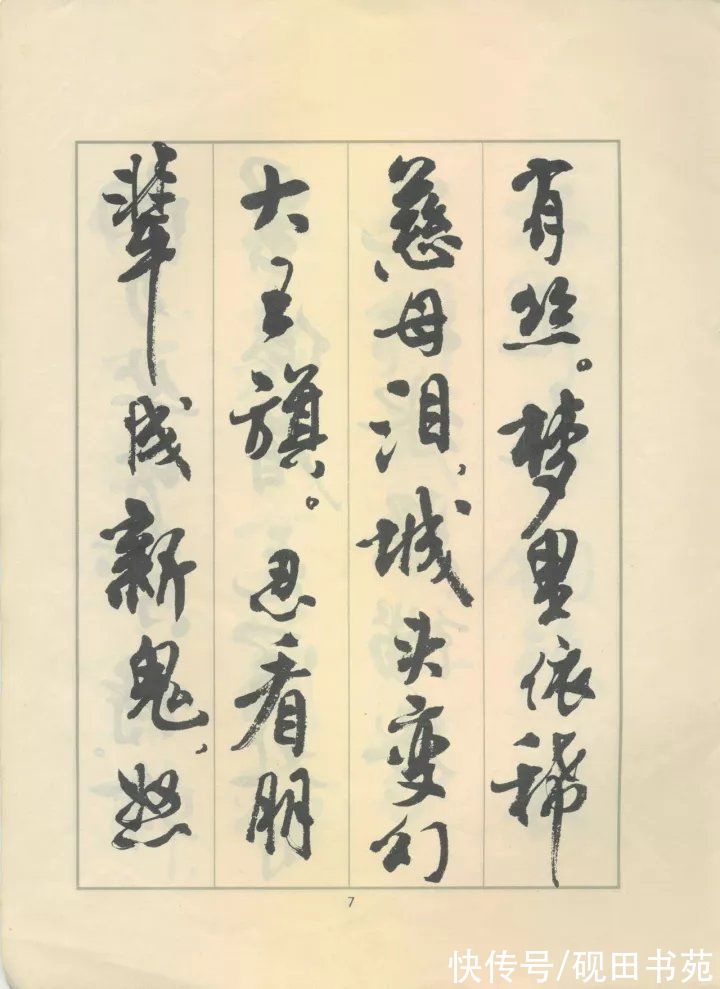 有丝。梦里依稀
慈母泪，城头变幻
大王旗。忍看朋
辈成新鬼，怒
7
快传号/砚田书苑